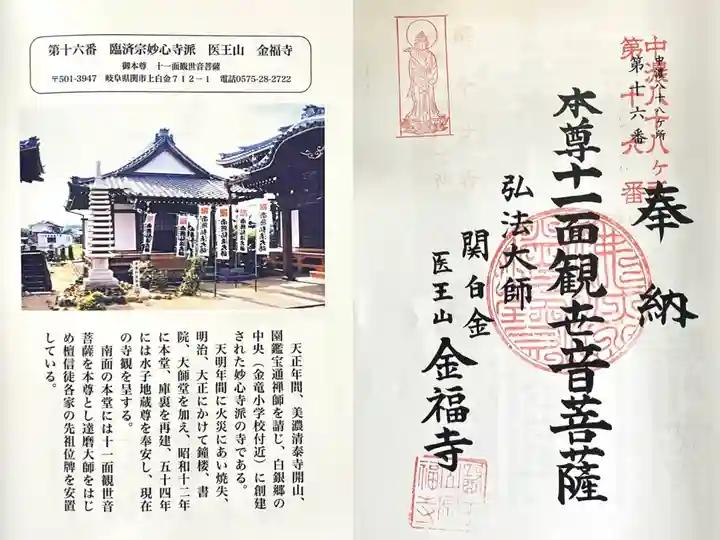 第十六番 臨済宗妙心寺派 医王山 金福寺
御本尊 十一面観世音菩薩
〒501-3947 岐阜県関市上白金712-1 電話0575-28-2722
天正年間、美濃清泰寺開山、
園鑑宝通禅師を請じ、白銀郷の
中央(金竜小学校付近)に創建
された妙心寺派の寺である。
天明年間に火災にあい焼失、
明治、大正にかけて鐘楼、書
院、大師堂を加え、昭和十二年
に本堂、庫裏を再建、五十四年
には水子地蔵尊を奉安し、現在
の寺観を呈する。
南面の本堂には十一面観世音
菩薩を本尊とし達磨大師をはじ
め檀信徒各家の先祖位牌を安置
している。
中濃八十八ヶ所
第十六番
中濃八十八ヶ所
第十六番
奉納
本尊十一面観世音菩薩
弘法大師
関白金
医王山 金福寺